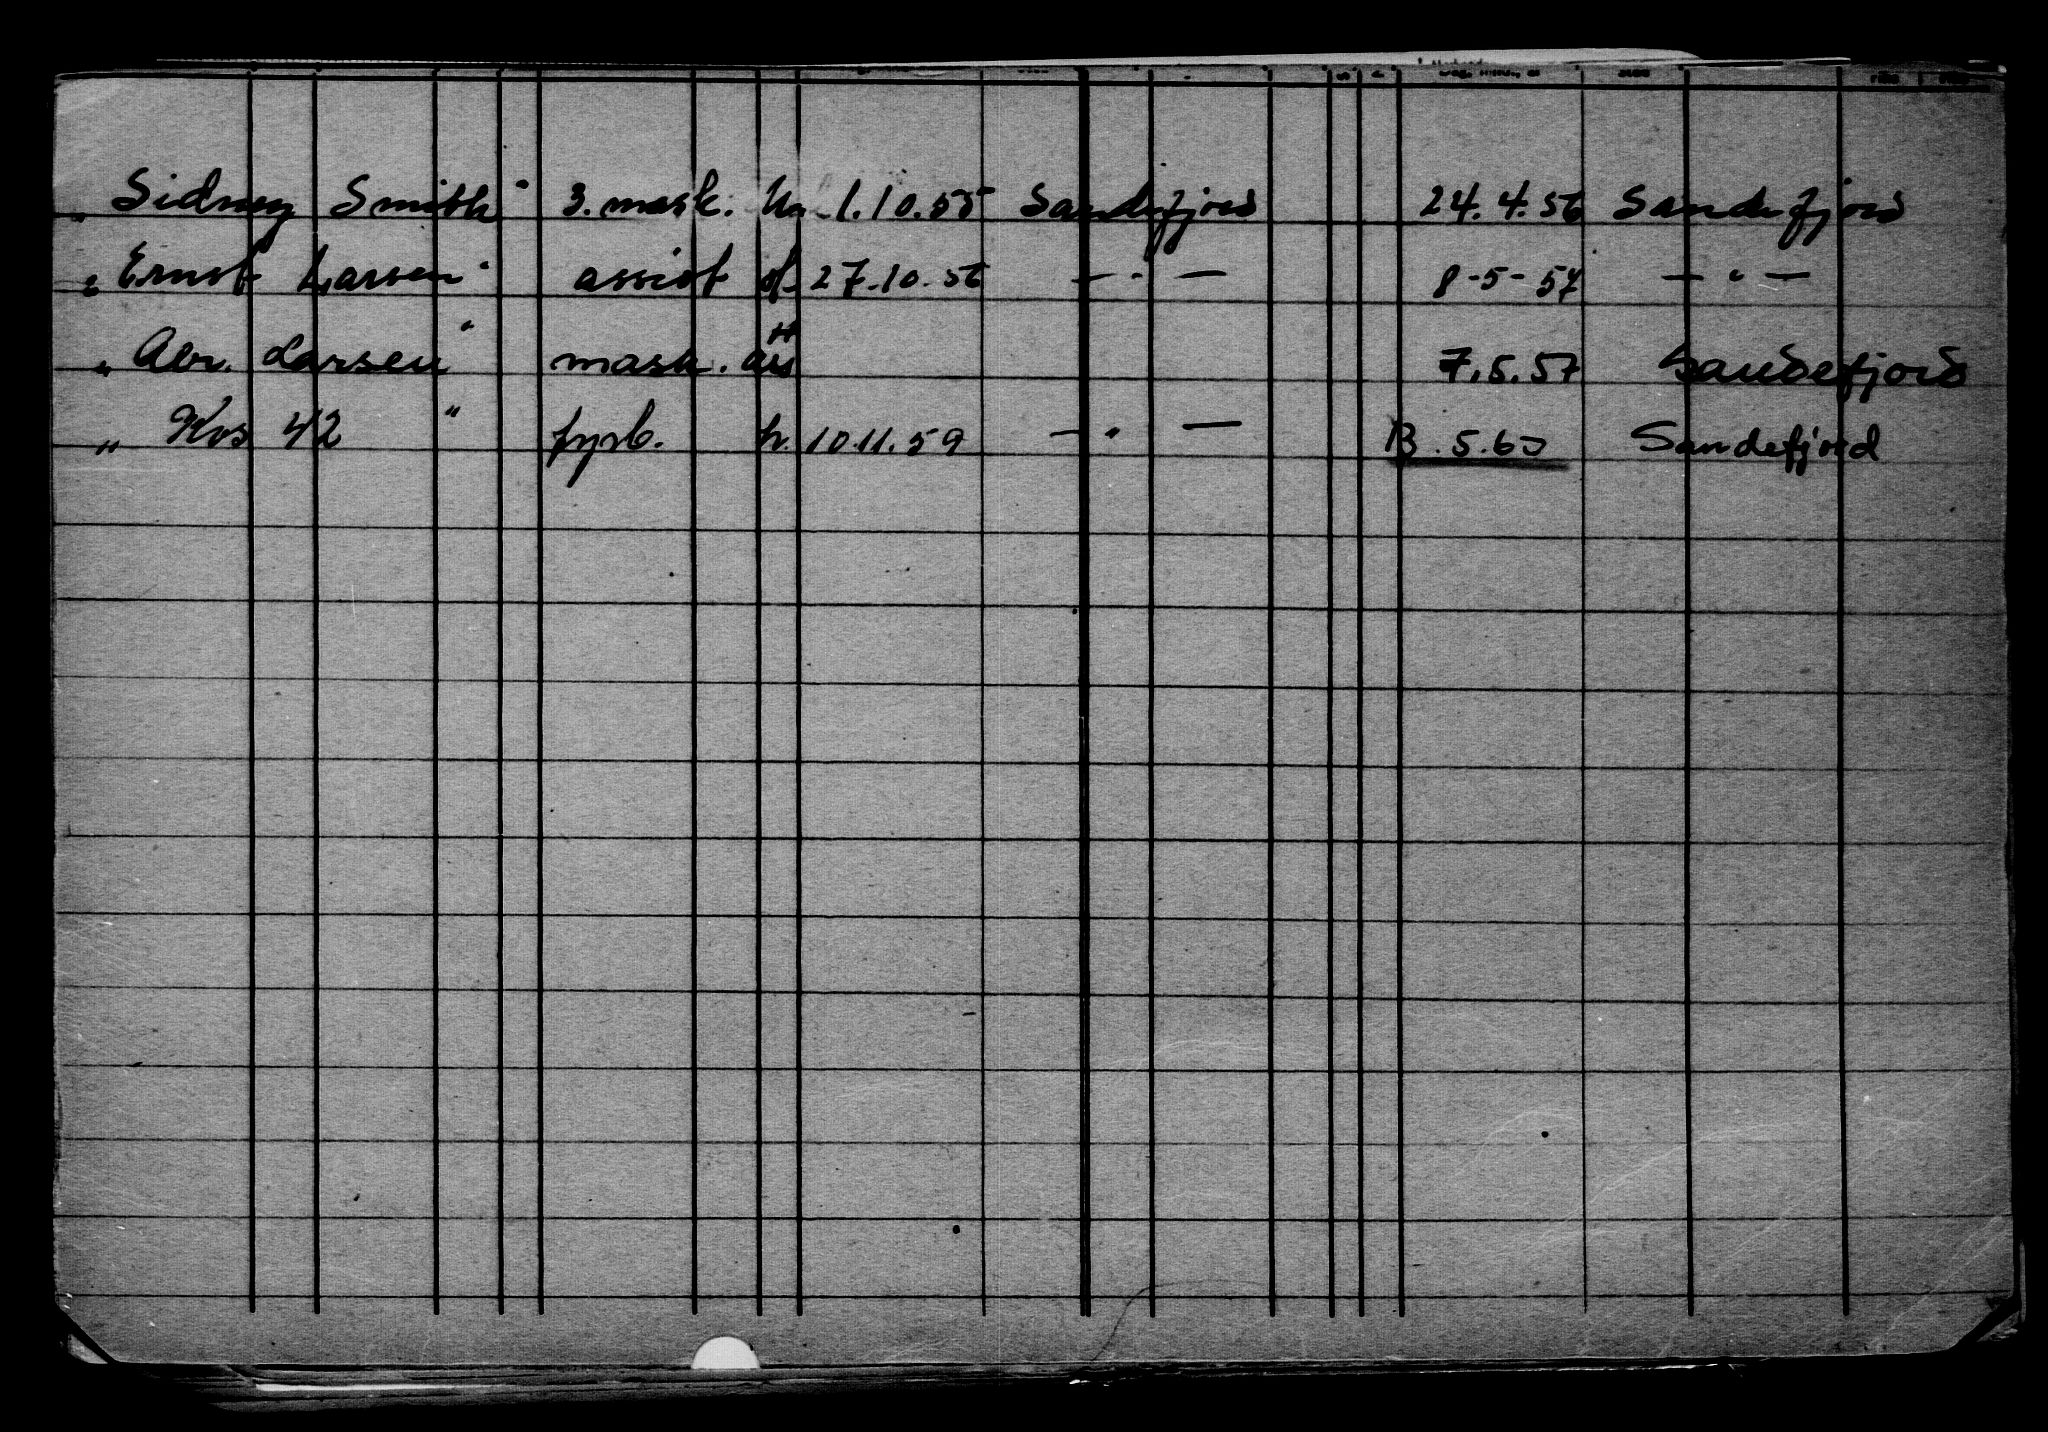 „ Sidney Smith " 3. mask. Hv. 1.10.55 Sandefjord 24.4.56 Sandefjord
„ Ernst Larsen " assist of. 27.10.56 — " — 8-5-57 — " —
„ Abr. Larsen " mask. ass H 7.5.57 Sandefjord
„ Kos 42 " fyrb. h. 10.11.59 — " — 13.5.60 Sandefjord